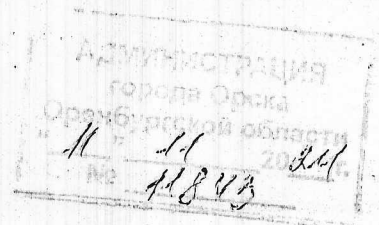 АДМИНИСТРАЦИЯ
города Орска
Оренбургской области
" 11 " 11 20 г.
№